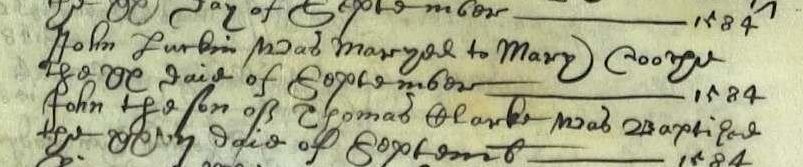 day of September 1584
John Lurkin was maryed to Mary Coothe
the xx daie of September 1584
John the son off Thomas Clarke was Baptised
the daie of Septemb 1584